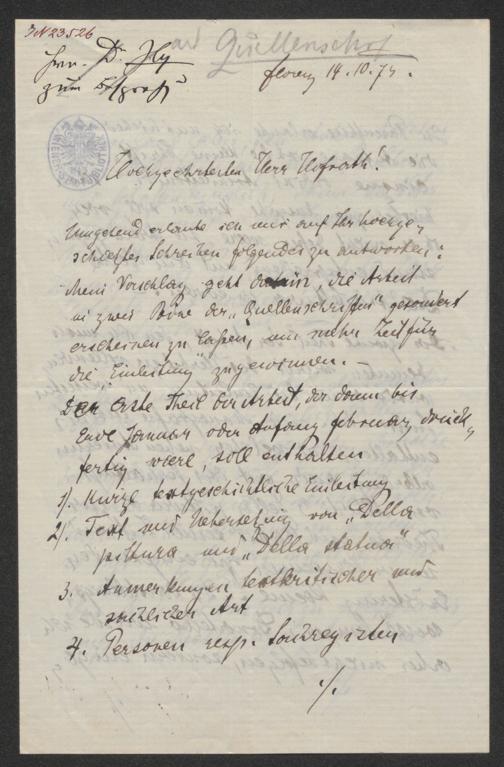 JN 23526
ad Quellensch
Herrn Dr. Ilg
zum
Florenz 14.10.75.
Hochgeehrtester Herr Hofrath!
Umgehend erlaube ich mir auf Ihr hochge-
schätztes Schreiben folgendes zu antworten:
Mein Vorschlag geht dahin, die Arbeit
in zwei Bde der „Quellenschriften" gesondert
erscheinen zu lassen, um mehr Zeit für
die „Einleitung" zu gewinnen. –
Der erste Theil der Arbeit, der dann bis
Ende Januar oder Anfang februar druck-
fertig wäre, soll enthalten
1). Kurze textgeschichtliche Einleitung
2). Text und Uebersetzung von „Della
pittura und „Della statua"
3. Anmerkungen textkritischer und
sachlicher Art
4. Personen resp. Sachregister
./.